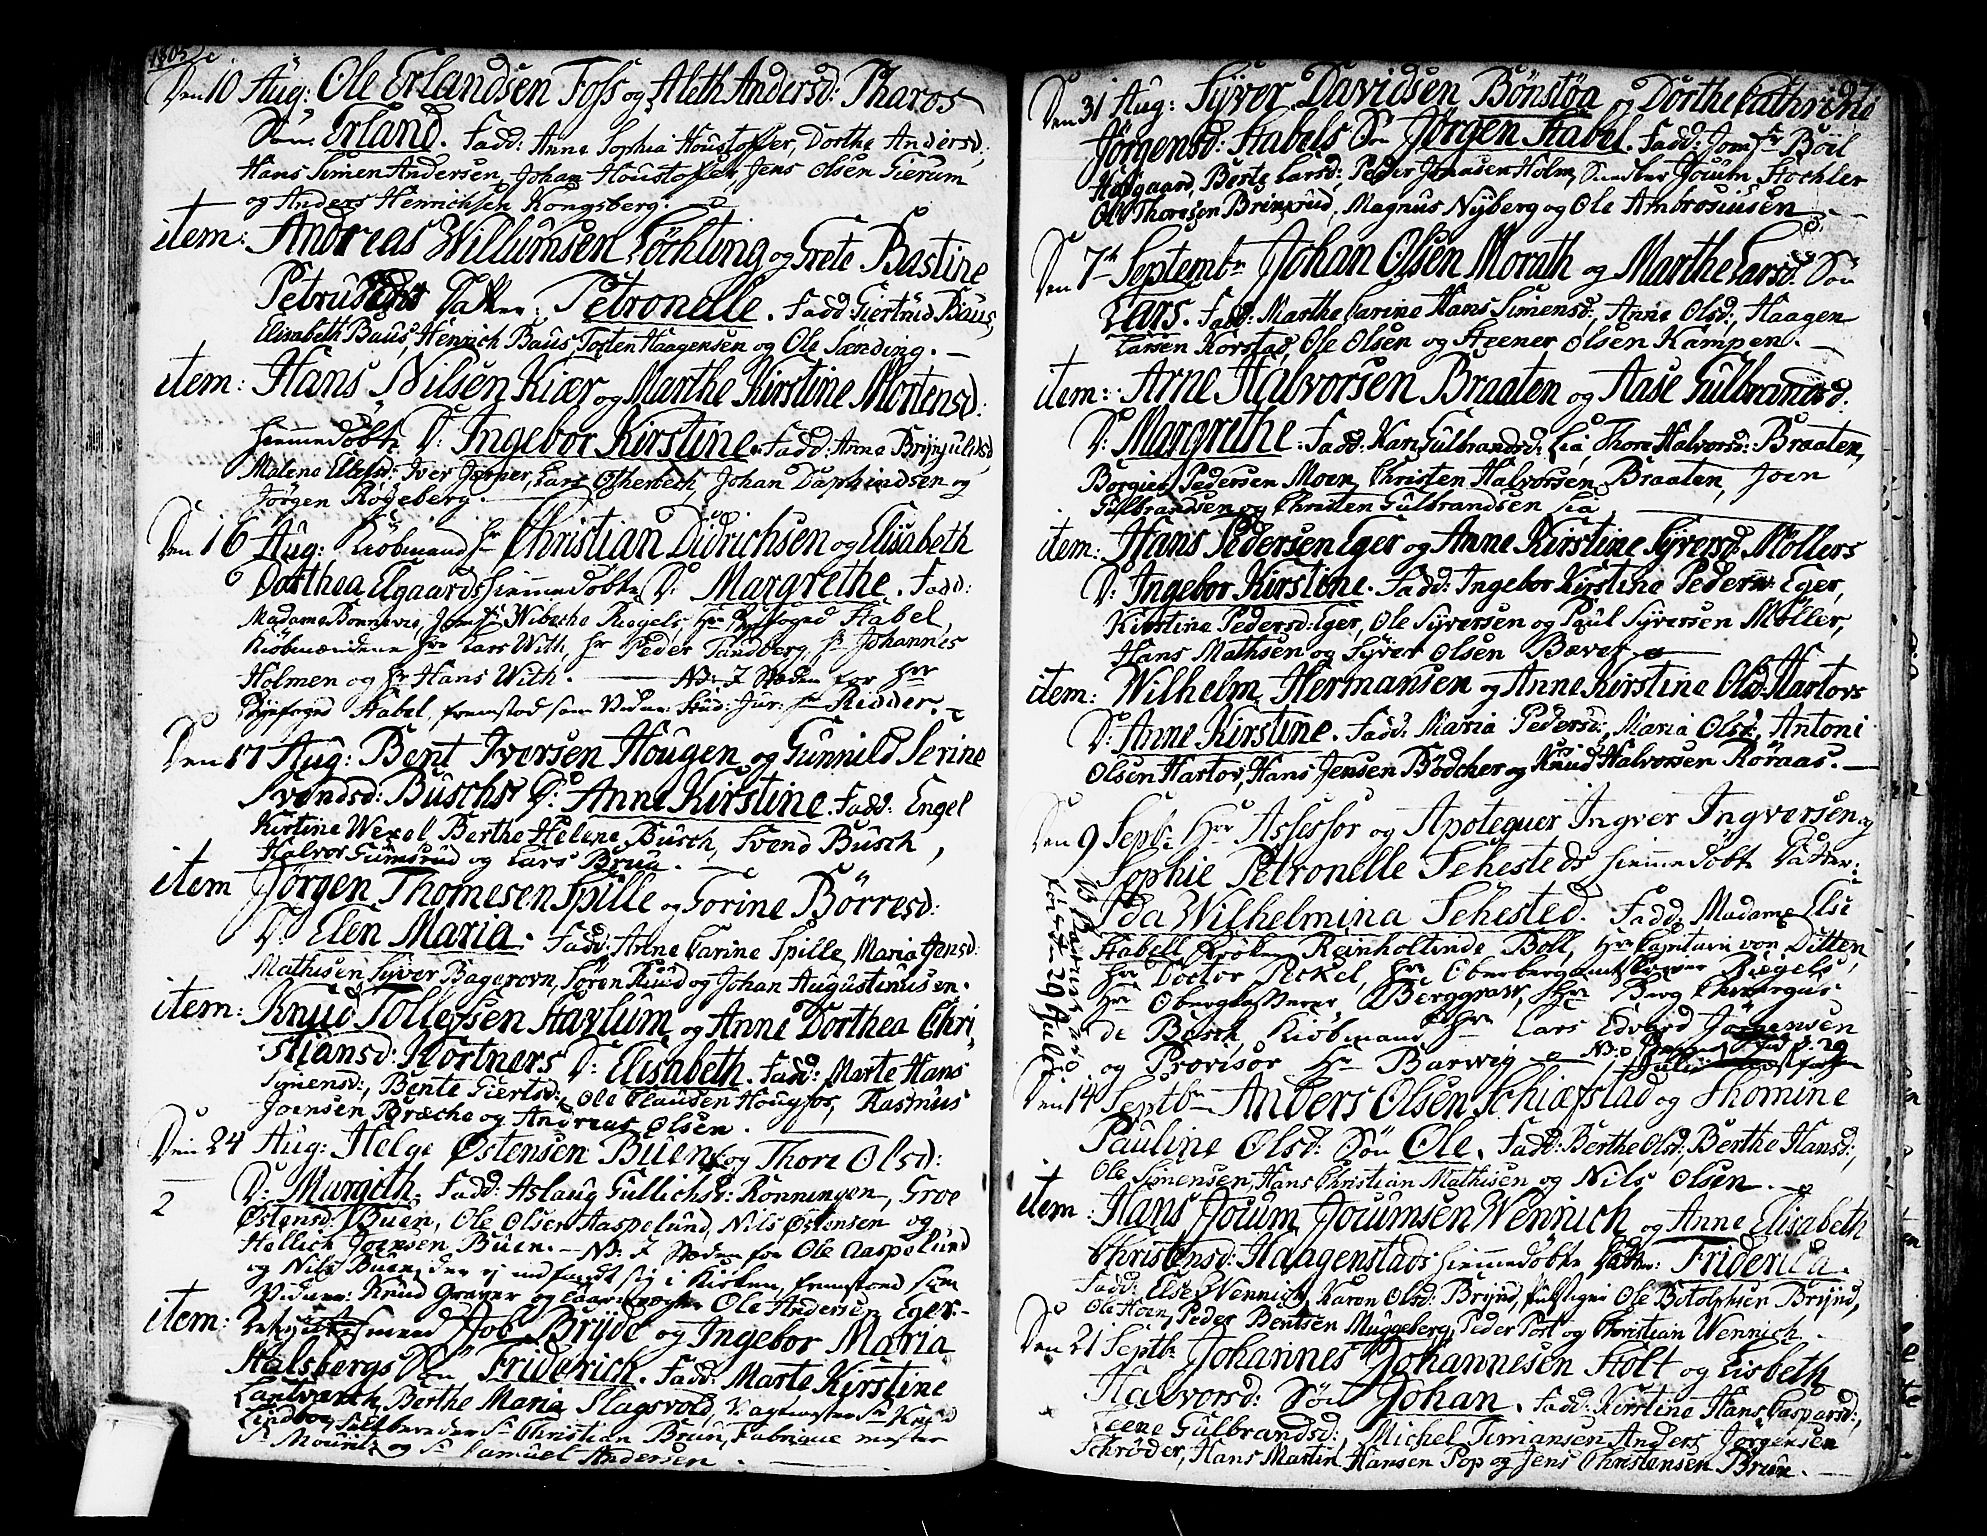 1805
Den 10 Aug: Ole Erlandsen Foss og Aleth Andersd: Tharos
Søn: Erland. Fadd: Anne Sophia Houstopler, Dorthe Andersd:
Hans Simen Andersen, Johan Houstopler, Jens Olsen Gierum
og Anders Henrichsen Kongsberg:
item: Andreas Willumsen Löchting og Grete Bastine
Petrusd Datter: Petronelle. Fadd: Giertrud Baus,
Elisabeth Baus, Henrich Baus, Torten Haagensen og Ole Sænding.
item: Hans Nilsen Kiær og Marthe Kirstine Mortensd:
hiemmedøbte D: Ingebor Kirstine. Fadd: Anne Brynjulvsd,
Malene Ellefsd: Iver Jerper, Lars Otherbech, Johan Daphindsen og
Jørgen Røgeberg.
Den 16 Aug: Kiöbmand Hr Christian Didrichsen og Elisabeth
Dorthea Elgaards hiemmedøbte D: Margrethe. Fadd:
Madame Bonnevie, Jomfr Wibeche Riegels, Hr Byefoged Stabel,
Kiöbmændene Hr Lars With, Hr Peder Tandberg, Hr Johannes
Holmen og Hr Hans With. NB: I Steden for Hr
Byefoged Stabel, fremstod som Vidne Stud: Jur: Hr Ridder.
Den 17 Aug: Bent Iversen Hougen og Gunnild Serine
Svendsd: Buschs D: Anne Kirstine. Fadd: Engel
Kirtine Wexel, Berthe Helene Busch, Svend Busch,
Halvor Gumsrud og Lars Brun.
item Jørgen Thomesen Spille og Torine Børresd:
D: Elen Maria. Fadd: Anne Carine Spille, Maria Jensd:
Mathisen, Syver Bagerovn, Søren Ruud og Johan Augustinusen.
item: Knud Tollefsen Havlum og Anne Dorthea Chri
stiansd: Hortners D: Elisabeth. Fadd: Marte Hans
Symensd:, Bente Giertsd:, Ole Clausen Hougfos, Rasmus
Joensen Bræche og Andreas Olsen.
Den 24 Aug: Helge Østensen Buen og Thore Olsd:
2 D: Margith. Fadd: Aslaug Gullichsd: Rønningen, Groe
Østensd: Buen, Ole Olsen Haspelund, Nils Østensen og
Hellich Joensen Buen. NB: I Steden for Ole Aaspelund
og Nils Buen, der ej indfandt sig i Kirken, fremstod som
Vidner: Knud Graver og Ole Andersen Eger.
item: Job Bryde og Ingebor Maria
Halsbergs Søn Friderich. Fadd: Marte Kirstine
Berthe Maria Slagsvold, Vagtmester Sr Knud
Lindboe, Sr Christian Brun, Fabriquemester
Sr Mouritz og Sr Samuel Andersen.
97
Den 31 Aug: Syver Davidsen Bønstøa og Dorthe Cathrine
Jørgensd: Stabels Søn Jørgen Stabel. Fadd: Jomfr Böel
Holgaard, Berte Larsd: Peder Jonasen Holm, Jocum Stochler
Ole Thoresen Brinxrud, Magnus Nyberg og Ole Ambrosiusen
Den 7de Septembr Johan Olsen Morath og Marthe Larsd: Søn
Lars. Fadd: Marthe Carine Hans Simensd:, Anne Olsd:, Haagen
Larsen Korstad, Ole Olsen og Steener Olsen Kampen.
item: Arne Halvorsen Braaten og Aase Gulbrandsd:
D: Margrethe. Fadd: Kari Gulbrandsd: Lia, Thore Halvorsd: Braaten,
Borgier Pedersen Moen, Christen Halvorsen Braaten, Joen
Gulbrandsen og Christen Gulbrandsen Lia
item: Hans Pedersen Eger og Anne Kirstine Syversd: Møllers
D: Ingebor Kirstine. Fadd: Ingebor Kirstine Peders: Eger,
Kirstine Pedersd: Eger, Ole Syversen og Paul Syversen Møller,
Hans Mathsen og Syver Olsen Bævef
item: Wilhelm Hermansen og Anne Kirstine Olsd: Hartovs
D: Anne Kirstine. Fadd: Maria Pedersd:, Maria Olsd:, Antoni
Olsen Hartov, Hans Jensen Bødcher og Knud Halvorsen Röraas.
Den 9 Septbr Hr Assessor og Apotequer Ingver Ingversen og
Sophie Petronelle Sehesteds hiemmedøbte Datter:
Ida Wilhelmina Sehested. Fadd: Madame Else
Stabell, Frøken Reinholtinde Boll, Hr Capitain von Ditten,
Hr Doctor Peckel, Hr Oberbergamtskriver Riegels,
Hr Oberguldberer Berggrav, Hr Berg Chirurgus
de Besche, Kiöbmand Hr Lars Edvard Jørgensen
og Provisor Hr Barwig
NB Barnet er født den 29 Julii
Den 14 Septbr Anders Olsen Schiæfstad og Thomine
Pauline Olsd: Søn Ole. Fadd: Berthe Olsd:, Berthe Hansd:,
Ole Simensen, Hans Christian Mathisen og Nils Olsen.
item Hans Jocum Jocumsen Wennich og Anne Elisabeth
Christensd: Haagenstads hiemmedøbte Datter: Friderica.
Fadd: Else Wennich, Karen Olsd: Brynd, Ole Botolphsen Brynd,
Ole Hoen, Peder Bentsen Muggeberg, Peder Post og Christian Wennich.
Den 21 Septbr Johannes Johannesen Holt og Lisbeth
Halvorsd: Søn Johan. Fadd: Kirstine Hans Caspersd:,
Leene Gulbrandsd:, Michel Simansen, Anders Jørgensen
Schröder, Hans Martin Hansen Pop og Jens Christensen Brun.